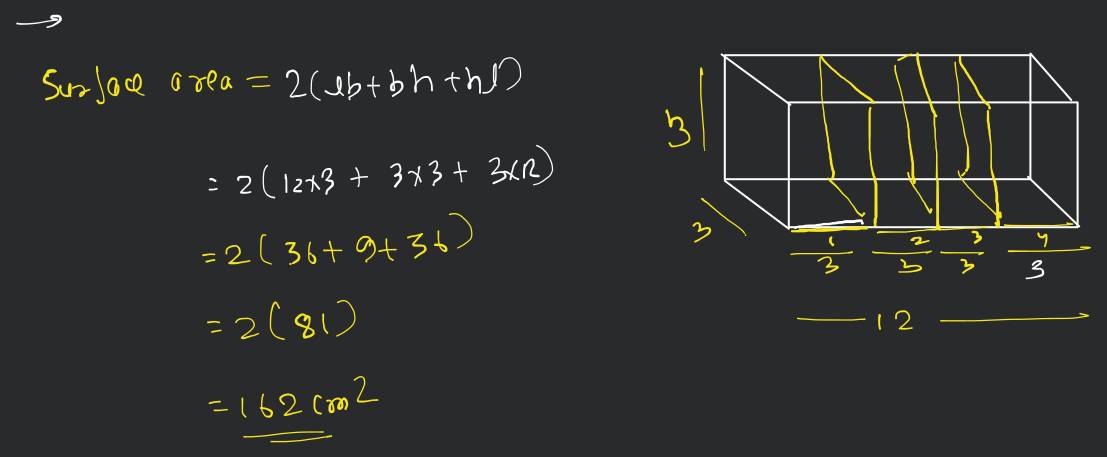 →
Surface area = 2(lb+bh+hl)
= 2(12x3 + 3x3 + 3x12)
= 2(36+9+36)
= 2(81)
= 162 cm2
3
3
1 2 3 4
3 3 3 3
12